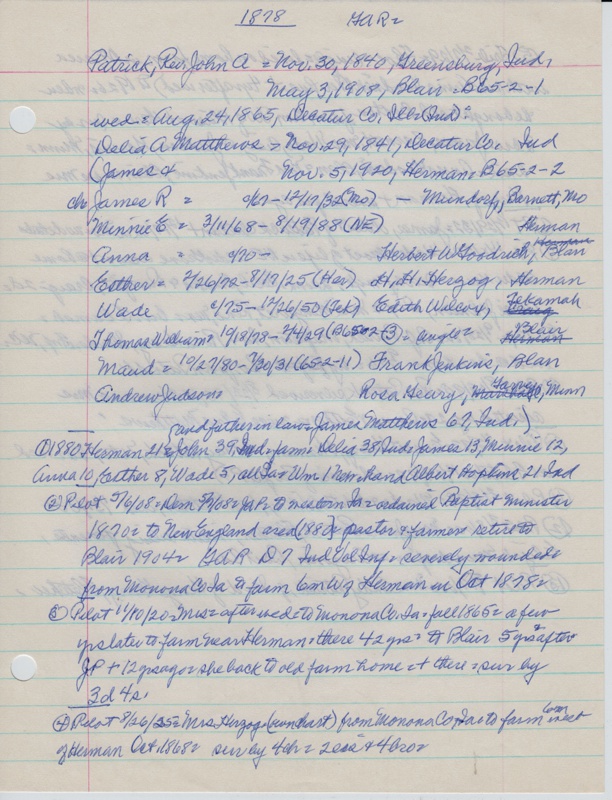 1878 GAR=
Patrick, Rev. John A = Nov. 30, 1840, Greensburg, Ind.
May 3, 1908, Blair = B65-2-1
wed = Aug. 24, 1865, Decatur Co, Ill = (Ind)
Delia A Matthews = Nov. 29, 1841, Decatur Co. Ind
(James & Nov. 5, 1920, Herman = B65-2-2
ch James R = c/67 - 12/17/32 (Mo) - Mundorf, Barnett, Mo
Minnie E = 3/11/68 - 8/19/88 (NE) Herman
Anna = c/70 - Herbert W Goodrich, Blair
Esther = 2/26/72 - 8/17/25 (Her) H. H. Herzog, Herman
Wade c/75 - 12/26/50 (Tek) Edith Wilcox, Tekamah
Thomas William = 10/18/78 - 2/4/29 (B65-2-3) = single = Blair
Maud = 10/27/80 - 7/30/31 (65-2-11) Frank Jenkins, Blair
Andrew Judson = Rosa Geary, Minn
(and father in law = James Matthews 67, Ind.)
① 1880 Herman 21 = John 39, Ind = farm = Delia 38, Ind = James 13, Minnie 12,
Anna 10, Esther 8, Wade 5, all Ia = Wm 1 Neb = hand Albert Hopkins 21 Ind
② Pilot 5/6/08 = Dem = JAP = to western Ia = ordained Baptist minister
1870 = to New England area (1880) = pastor & farmer = retire to
Blair 1904 = GAR D 7 Ind Vol Inf = severely wounded =
from Monona Co Ia to farm 6m W of Herman in Oct 1878 =
③ Pilot 11/10/20 = Mrs = after wed = to Monona Co. Ia = fall 1865 = a few
yrs later to farm near Herman = there 42 yrs = to Blair 5 yrs = after
JP + 12 yrs ago = she back to old farm home + there = sur by
3d 4s.
④ Pilot 8/26/25 = Mrs Herzog from Monona Co, Ia to farm 6m west
of Herman Oct. 1868 = sur by 4ch = 2sis + 4bro =